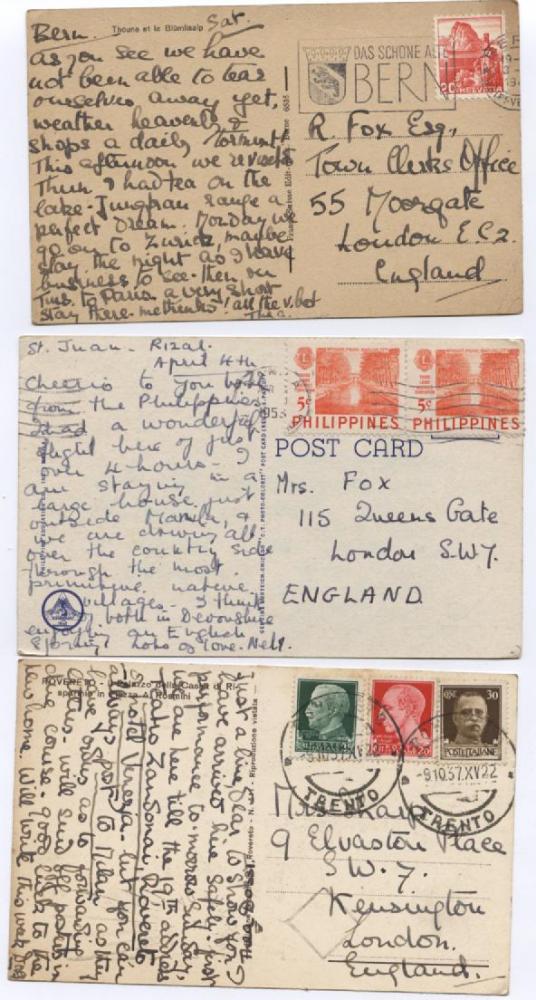 Bern. Thoune et le Blümlisalp Sat.
as you see we have
not been able to tear
ourselves away yet,
weather heavenly &
shops a daily torment!
This afternoon we
Thun & had tea on the
lake - Jungfrau range a
perfect Dream. Monday we
go on to Zurich, maybe
stay the night as I have
business to see - then on
Tues. to Paris a very short
stay there. methinks! all the v. best
DAS SCHÖNE
BERN
20 HELVETIA
R. Fox Esq,
Town Clerks Office
55 Moorgate
London E.C.2.
England
St. Juan - Rizal.
April 4th
Cheerio to you both
from the Philippines
Had a wonderful
flight here of just
over 4 hours - I
am staying in a
large house just
outside Manila, &
we are driving all
over the country side
through the most
primitive native
villages - I think
of both in Devonshire
enjoying an English
Spring! Lots of love. Nell.
1953
5c 5c
PHILIPPINES PHILIPPINES
POST CARD
Mrs. Fox
115 Queens Gate
London S.W.7.
ENGLAND
ROVERETO - Palazzo della Cassa di Ri-
sparmio in Piazza A. Rosmini
Just a line, Dear to show you I
have arrived here safely, first
performance to-morrow Sunday,
we are here till the 19th address
Teatro Zandonai Rovereto
Hotel Venezia - but you can
always post to Milan as they
have orders as to forwarding
letters, will send off
course - good luck to the
new home. Will write this week
Riproduzione vietata
30
POSTE ITALIANE
-9.10.37.XV 22
TRENTO
-9.10.37.XV 22
TRENTO
Mrs Sharp
9 Elvaston Place
S.W.7.
Kensington
London.
England.